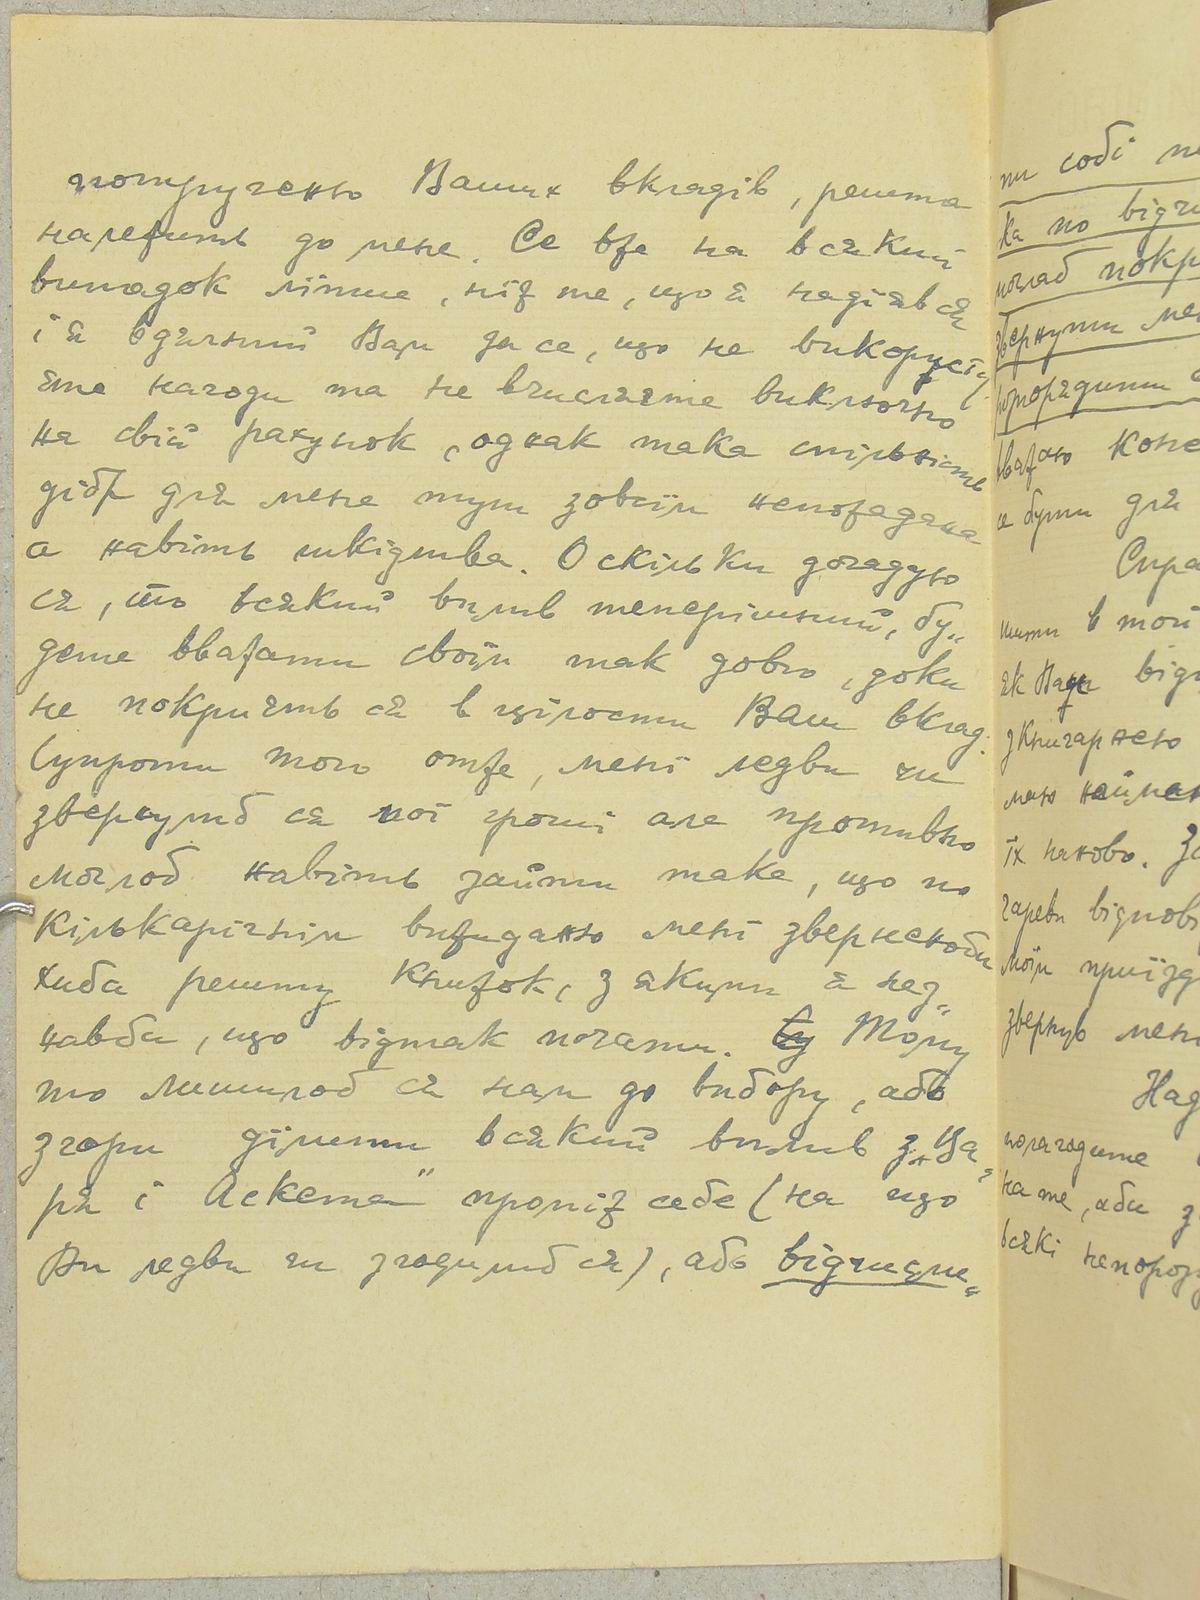 потрученю Ваших вкладів, решта
належить до мене. Се вже на всякий
випадок ліпше, ніж те, що я надіявся
і я вдячний Вам за се, що не використу
єте нагоди та не вчисляєте виключно
на свій рахунок, однак така спільність
дібр для мене тут зовсім непожадана
а навіть шкідлива. Оскільки догадую
ся, то всякий вплив теперішний, бу„
дете вважати своїм так довго, доки
не покриєть ся в цілости Ваш вклад.
Супроти того отже, мені ледви чи
звернулиб ся мої гроші але противно
моглоб навіть зайти таке, що по
кількарічнім выжиданю мені зверненоби
хиба решту книжок, з якими я нез„
навби, що відтак почати. Тому
то лишилоб ся нам до вибору, або
згори ділити всякий вплив з „Ца„
ря і Аскета" проміж себе (на що
Ви ледви чи згодилиб ся), або відчисли„
ти собі
ка по
моглоб
звернути
попорядити
вважаю
се бути для
шити в той
як Вам
з Книгарнею
маю
їх наново. За
гареви
моїм приїзді
звернув мені
Над
полагодите
на те, аби з
всякі